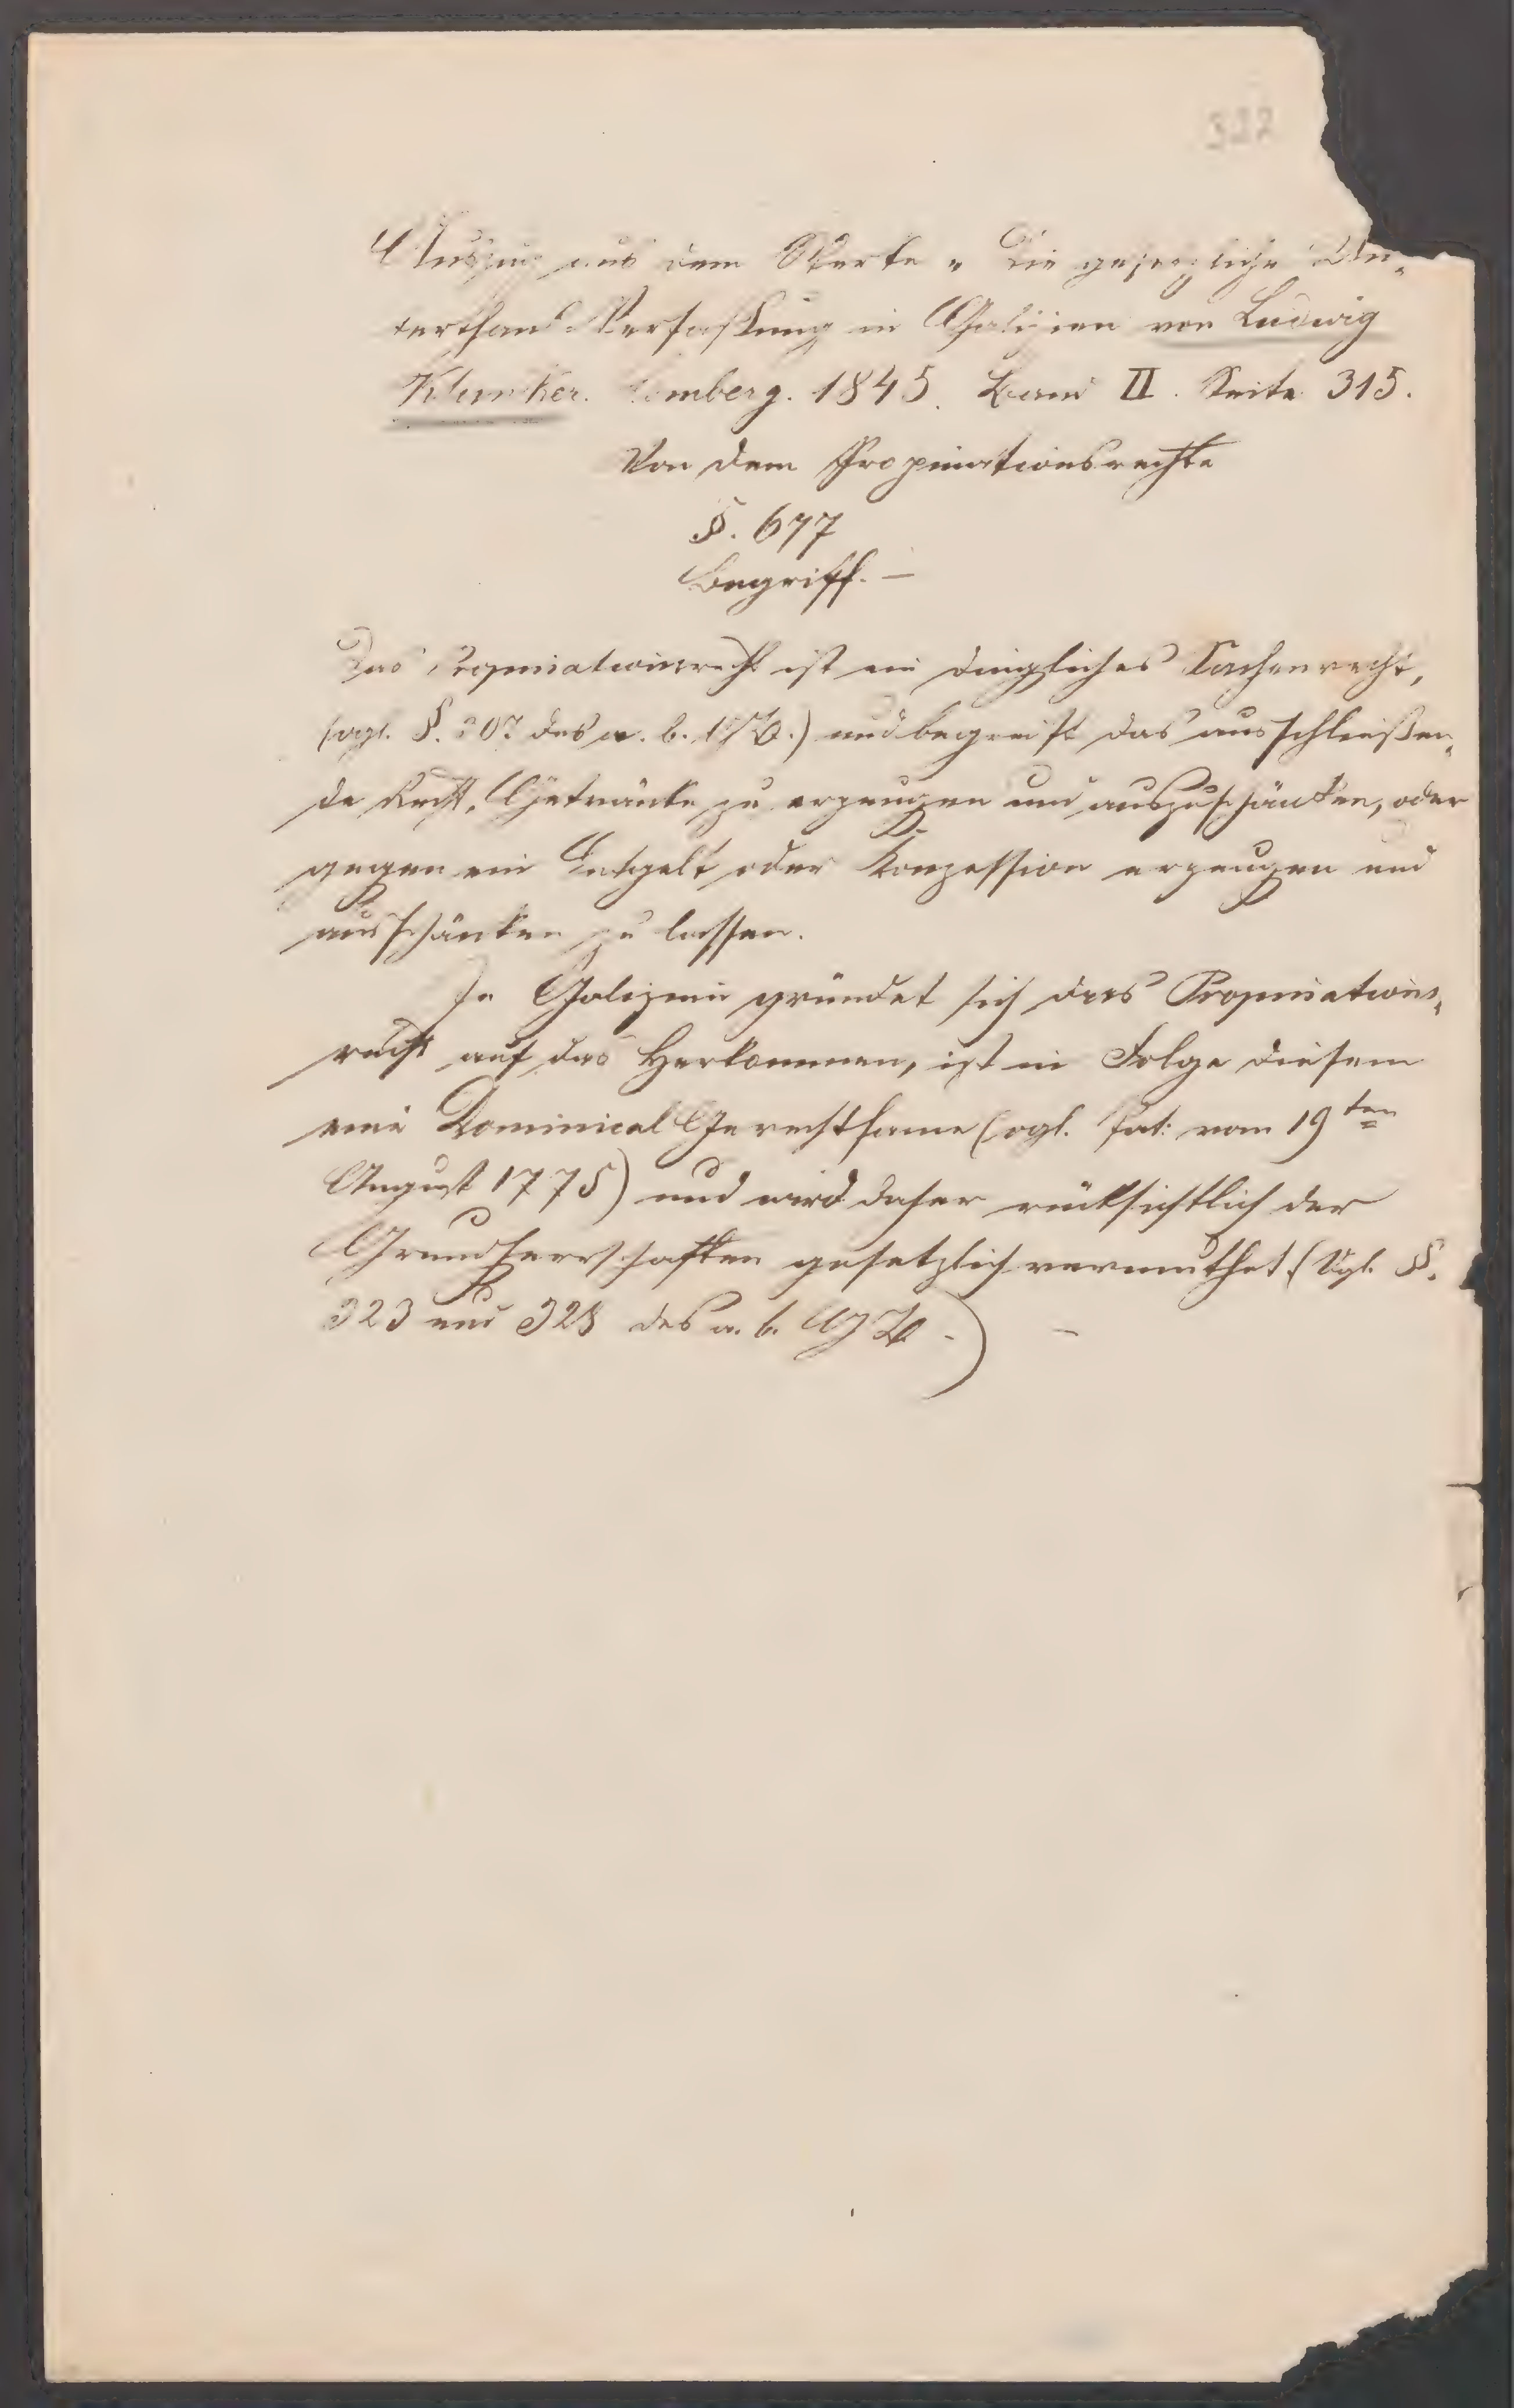 322
Auszug aus dem Werke „ Die gesetzliche Un-
terthans-Verfassung in Galizien von Ludwig
Klunker. Lemberg. 1845. Band II. Seite 315.
Von dem Propinationsrechte
§. 677
Begriff. —
Das Propinationsrecht ist ein dingliches Sachenrecht,
(vgl. §. 307 des a. b. GB.) und begreift das ausschließen-
de Recht, Getränke zu erzeugen und auszuschänken, oder
gegen ein Entgelt oder Konzession erzeugen und
ausschänken zu lassen.
In Galizien gründet sich das Propinations-
recht auf das Herkommen, ist in Folge diesem
eine Dominical Gerechtsame (vgl. Pat: vom 19ten
August 1775) und wird daher rücksichtlich der
Grundherrschaften gesetzlich vermuthet (Vgl. §.
323 und 328 des a. b. GB.) —